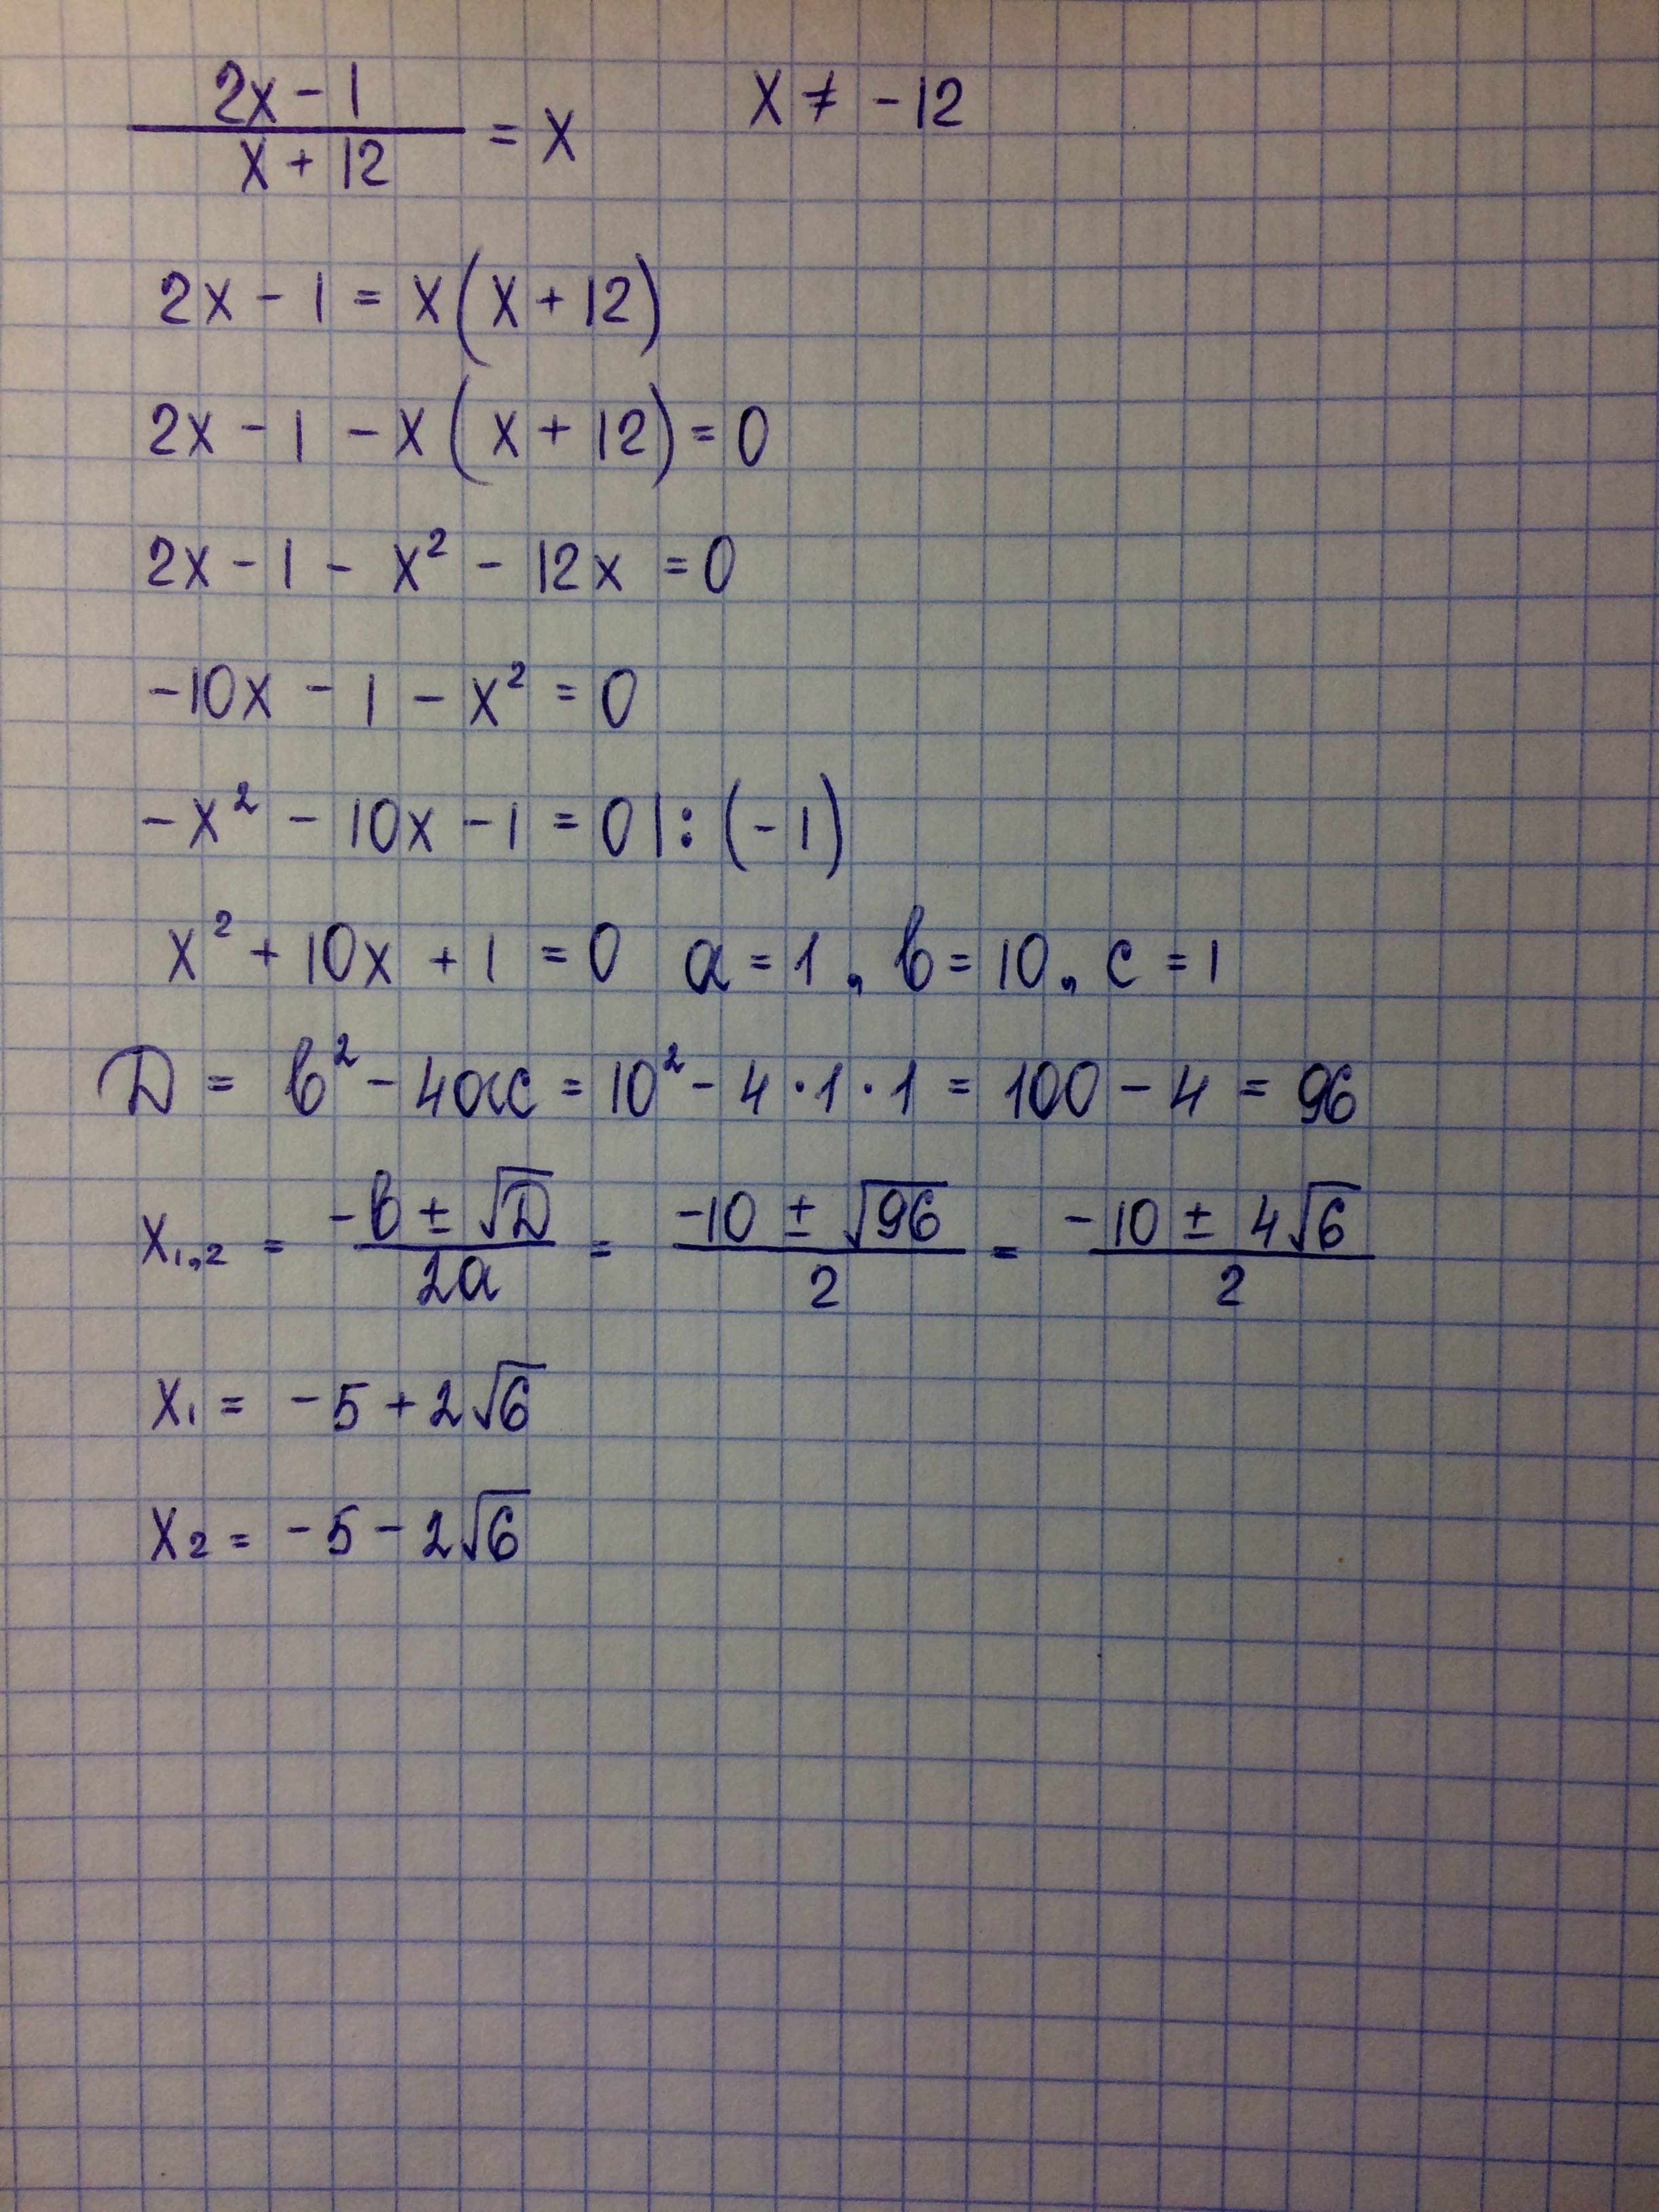 (2x - 1)/(x + 12) = x    x ≠ -12
2x - 1 = x(x + 12)
2x - 1 - x(x + 12) = 0
2x - 1 - x² - 12x = 0
-10x - 1 - x² = 0
-x² - 10x - 1 = 0 |: (-1)
x² + 10x + 1 = 0  a = 1, в = 10, c = 1
D = в² - 4ac = 10² - 4 · 1 · 1 = 100 - 4 = 96
x₁,₂ = (-в ± √D)/(2a) = (-10 ± √96)/2 = (-10 ± 4√6)/2
x₁ = -5 + 2√6
x₂ = -5 - 2√6